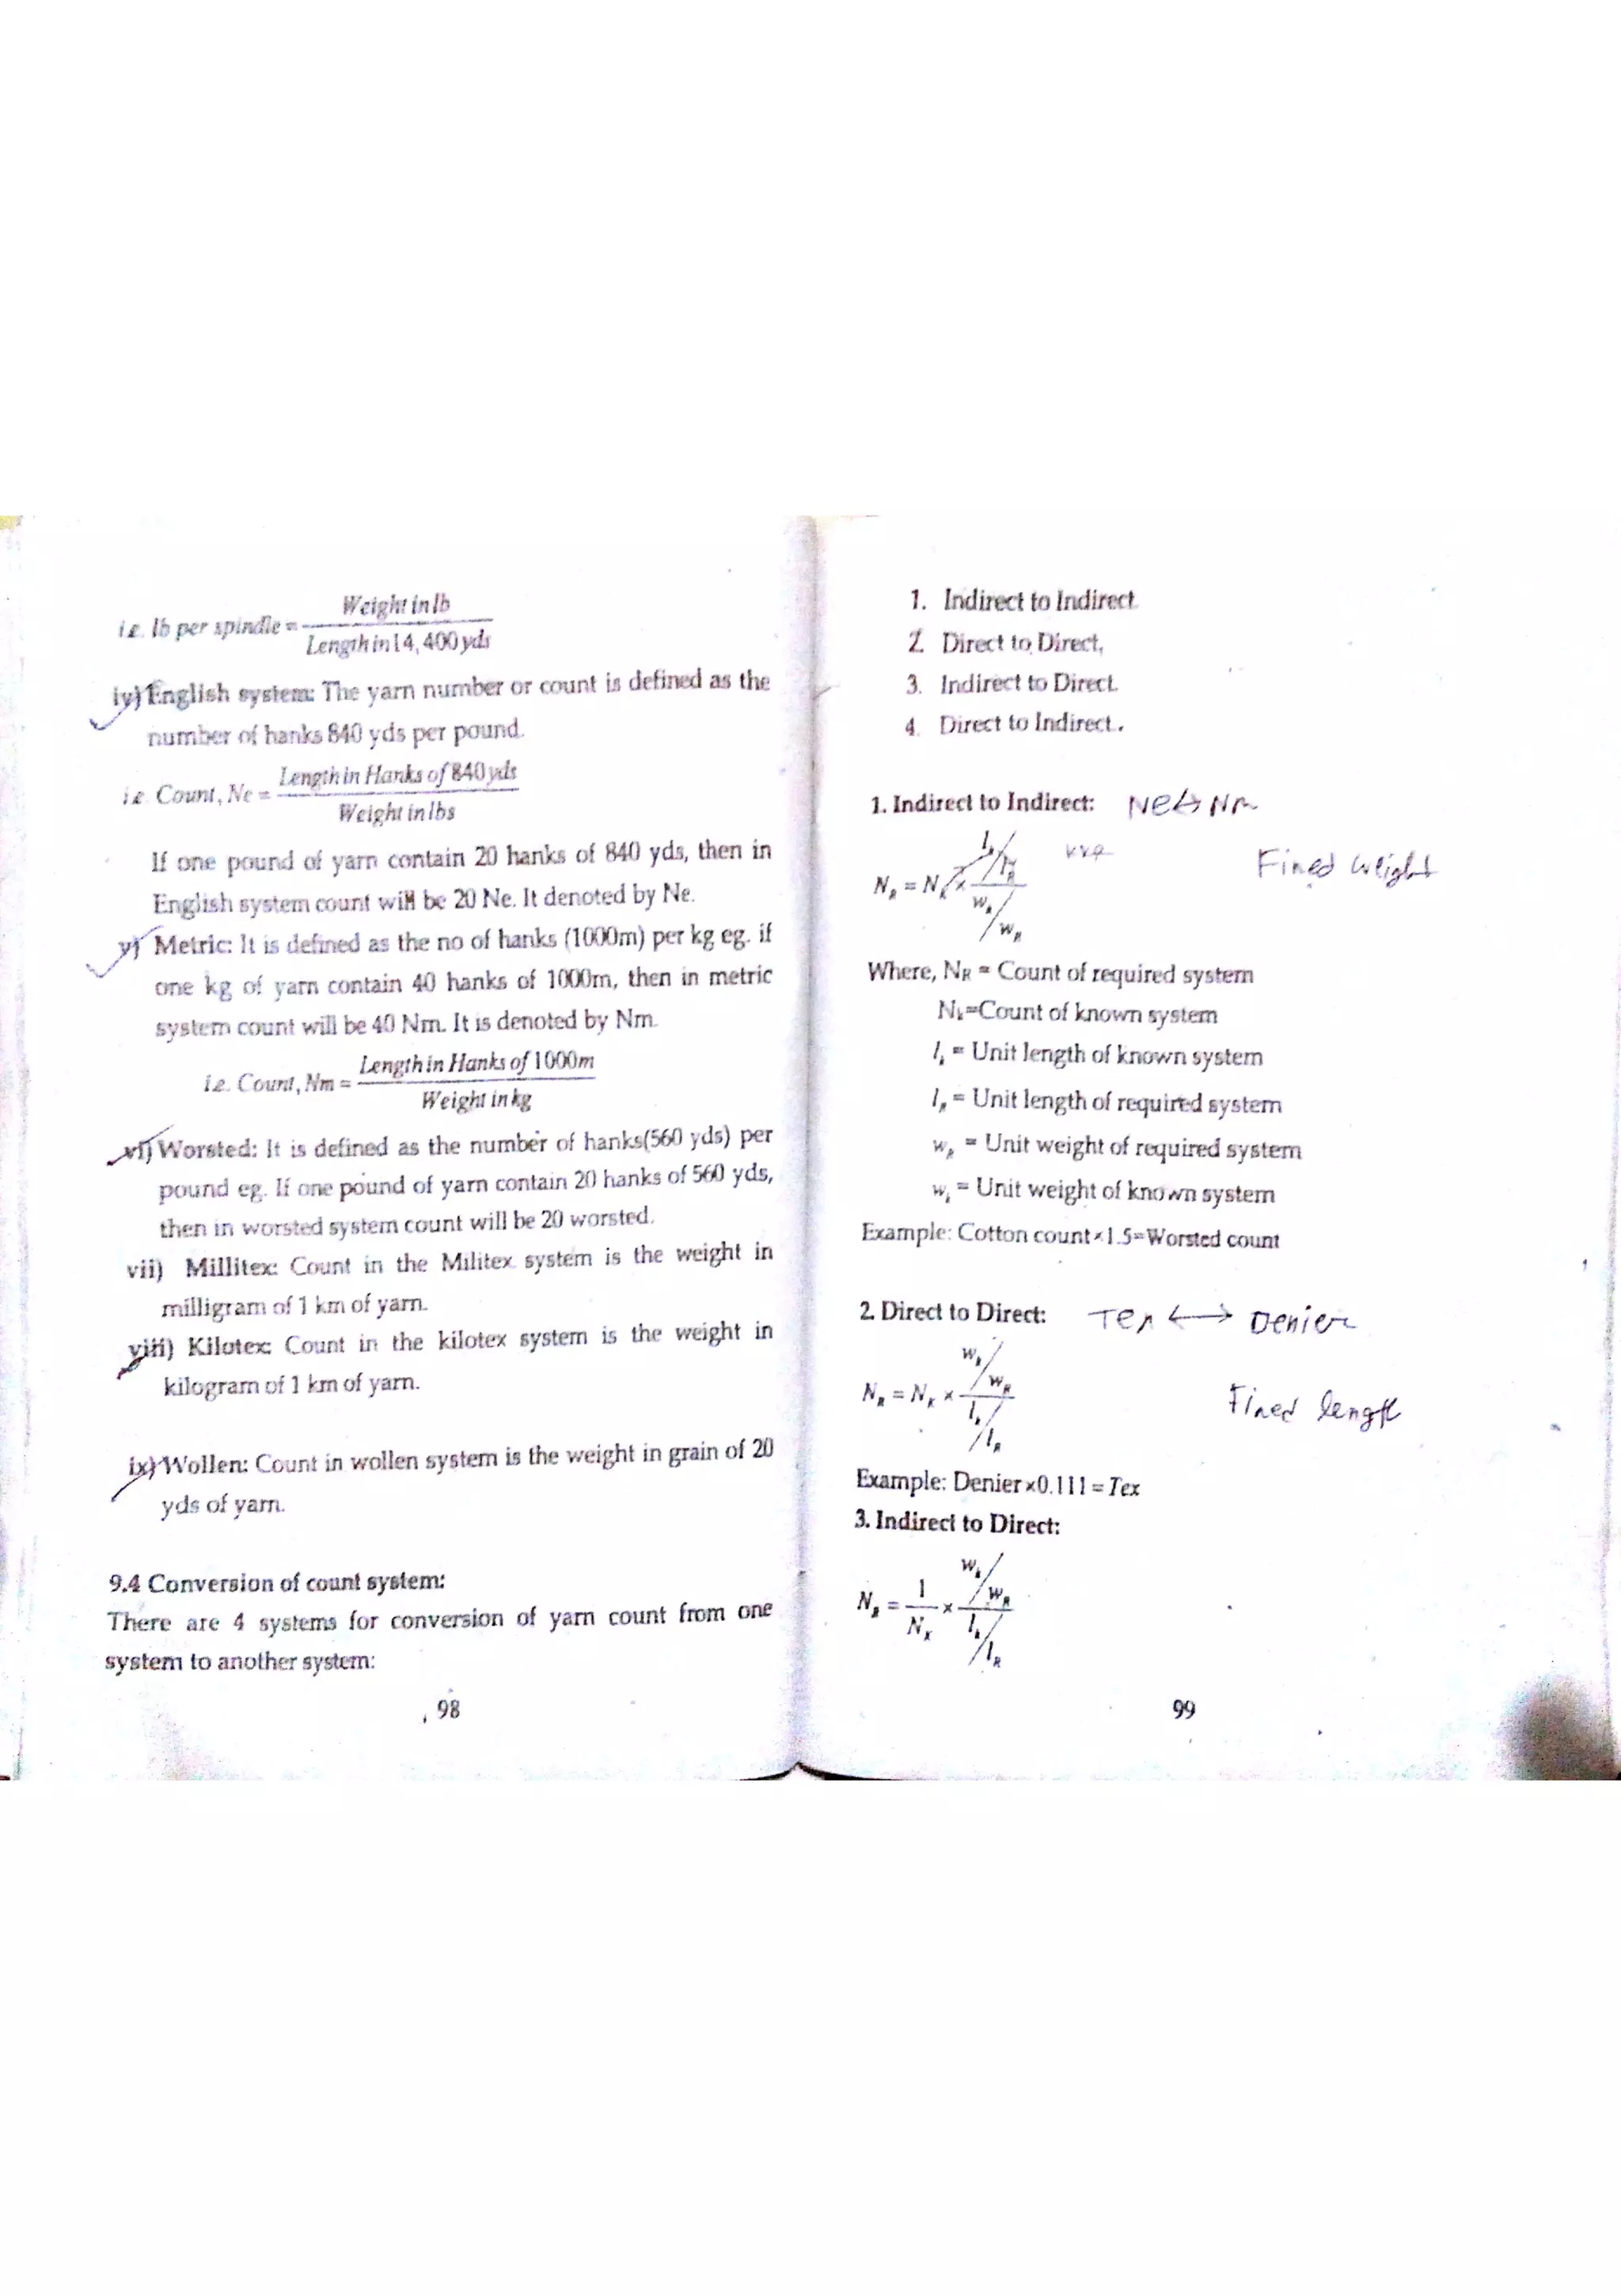 i.e. lb per spindle = Weight in lb / Length in 14,400 yds
iv) English system: The yarn number or count is defined as the
number of hanks 840 yds per pound.
i.e. Count, Ne = Length in Hanks of 840 yds / Weight in lbs
If one pound of yarn contain 20 hanks of 840 yds, then in
English system count will be 20 Ne. It denoted by Ne.
v) Metric: It is defined as the no of hanks (1000m) per kg eg. if
one kg of yarn contain 40 hanks of 1000m, then in metric
system count will be 40 Nm. It is denoted by Nm.
i.e. Count, Nm = Length in Hanks of 1000m / Weight in kg
vi) Worsted: It is defined as the number of hanks(560 yds) per
pound eg. If one pound of yarn contain 20 hanks of 560 yds,
then in worsted system count will be 20 worsted.
vii) Millitex: Count in the Militex system is the weight in
milligram of 1 km of yarn.
viii) Kilotex: Count in the kilotex system is the weight in
kilogram of 1 km of yarn.
ix) Wollen: Count in wollen system is the weight in grain of 20
yds of yarn.
9.4 Conversion of count system:
There are 4 systems for conversion of yarn count from one
system to another system:
98
1. Indirect to Indirect
2. Direct to Direct,
3. Indirect to Direct.
4. Direct to Indirect.
1. Indirect to Indirect: Ne ↔ Nm
N_R = N_K × (l_k / l_R) / (w_k / w_R)
Fined weight
Where, NR = Count of required system
Nk=Count of known system
l_k = Unit length of known system
l_R = Unit length of required system
w_R = Unit weight of required system
w_k = Unit weight of known system
Example: Cotton count×1.5=Worsted count
2. Direct to Direct: Tex ↔ Denier
N_R = N_K × (w_k / w_R) / (l_k / l_R)
Fined length
Example: Denier×0.111=Tex
3. Indirect to Direct:
N_R = 1 / N_K × (w_k / w_R) / (l_k / l_R)
99